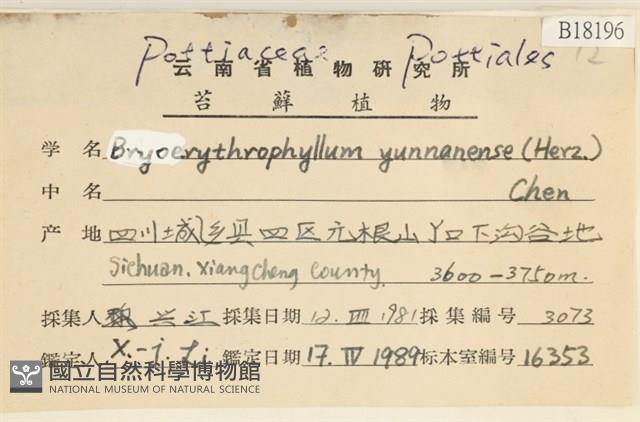 B18196
Pottiaceae Pottiales 12
云南省植物研究所
苔蘚植物
学名 Bryoerythrophyllum yunnanense (Herz.)
中名 Chen
产地 四川城乡县四区元根山丫口下沟谷地
Sichuan. Xiangcheng County. 3600-3750m.
採集人 兴江 採集日期 12. VIII 1981 採集編号 3073
鑑定人 X.-j. Li 鑑定日期 17. IV 1989 标本室編号 16353
國立自然科學博物館
NATIONAL MUSEUM OF NATURAL SCIENCE